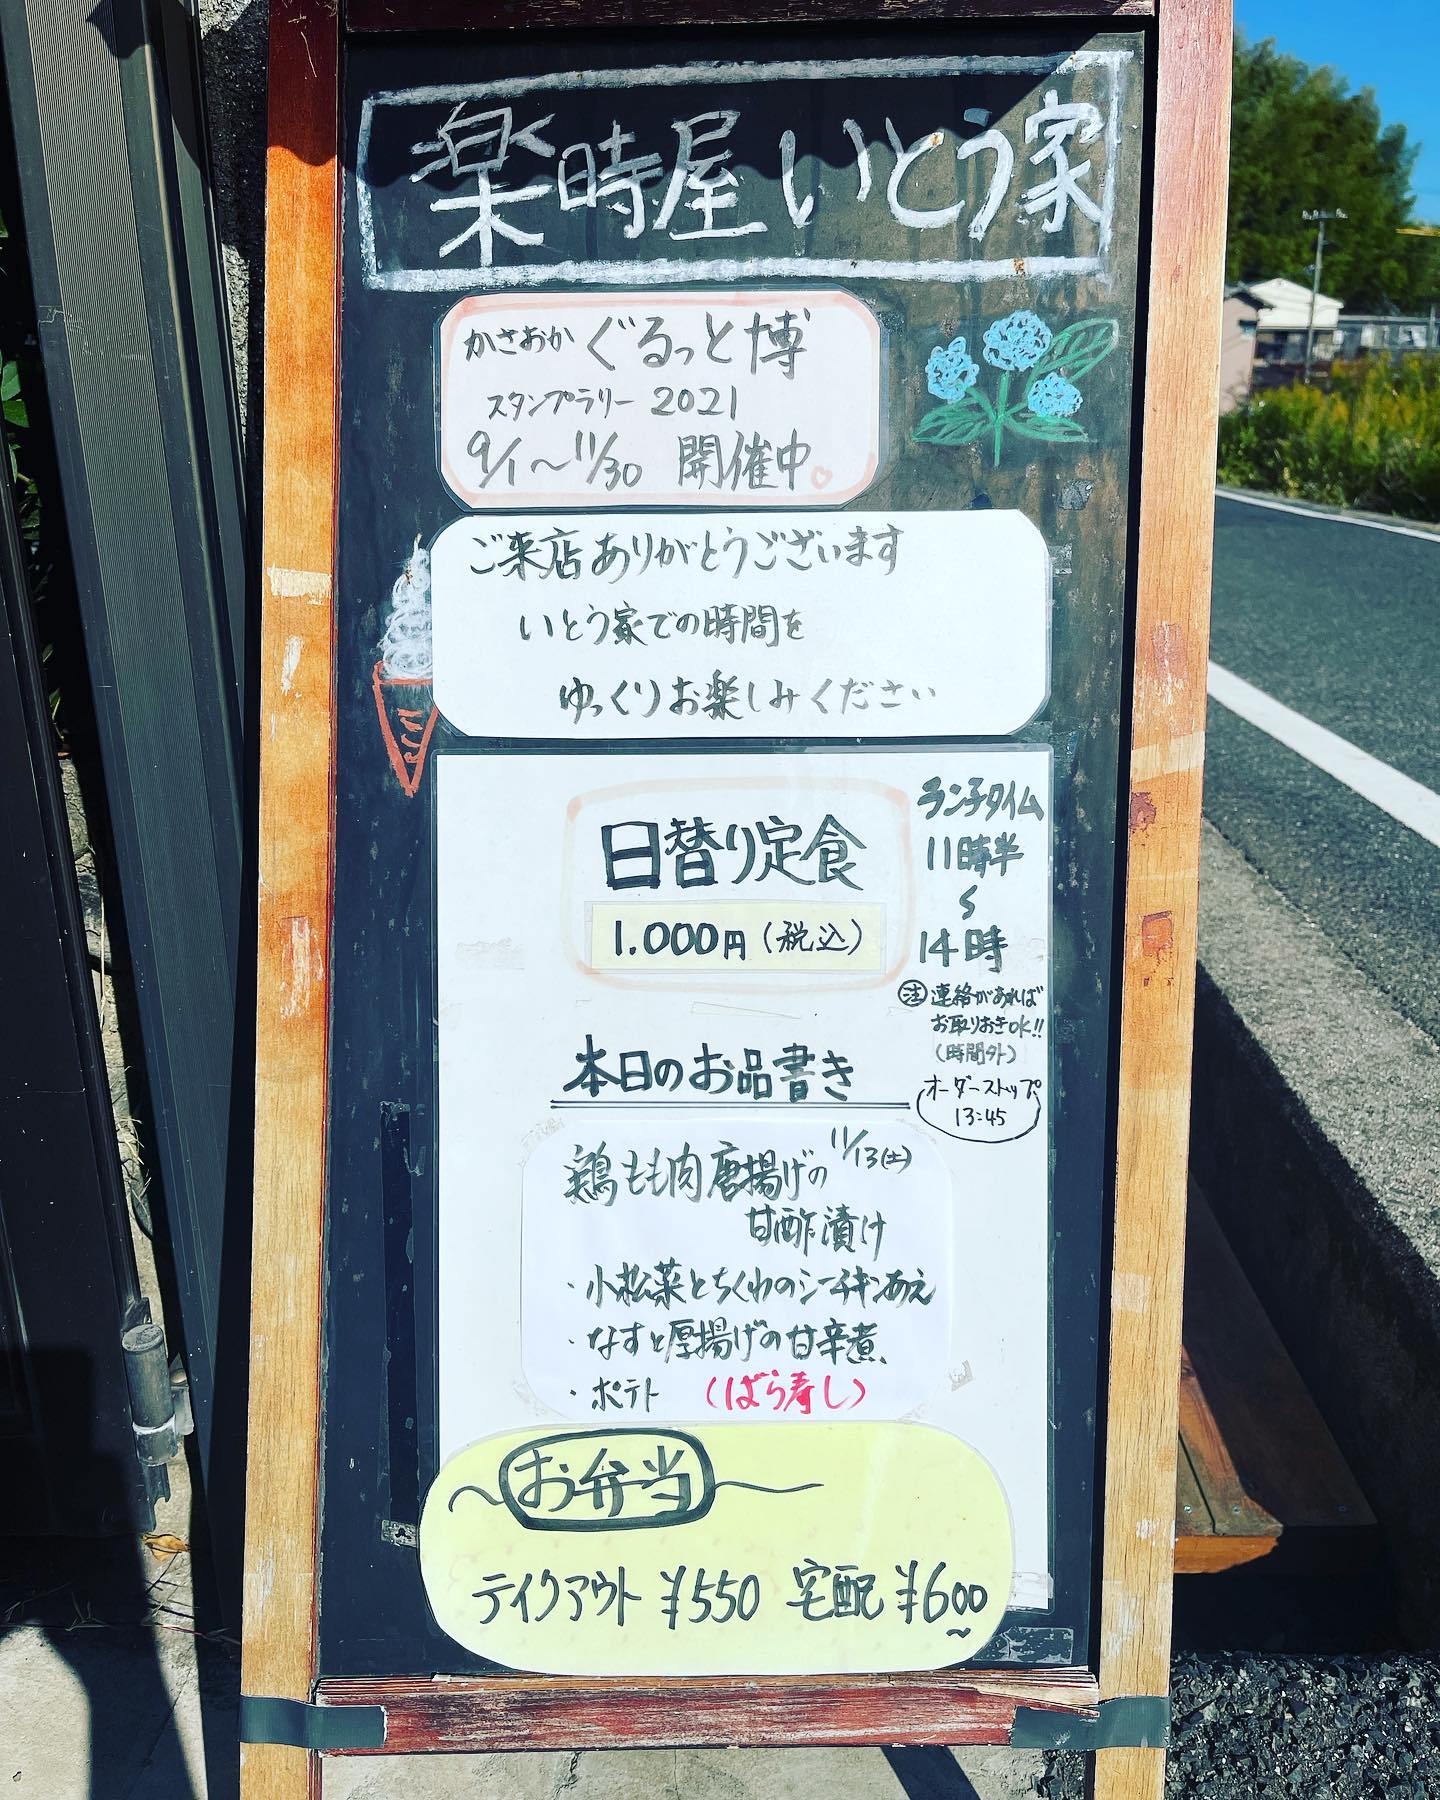 楽時屋いとう家
かさおかぐるっと博
スタンプラリー 2021
9/1〜11/30 開催中
ご来店ありがとうございます
いとう家での時間を
ゆっくりお楽しみください
日替り定食
1.000円(税込)
ランチタイム
11時半
〜
14時
注 連絡があれば
お取りおきOK!!
(時間外)
オーダーストップ
13:45
本日のお品書き
11/13(土)
鶏もも肉唐揚げの
甘酢漬け
・小松菜とちくわのシーチキンあえ
・なすと厚揚げの甘辛煮
・ポテト (ばら寿し)
〜お弁当〜
テイクアウト ¥550 宅配 ¥600〜